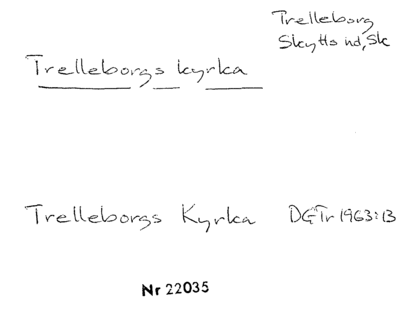 Trelleborg
Skytts hd, Sk
Trelleborgs kyrka
Trelleborgs Kyrka DGTr 1963:13
Nr 22035